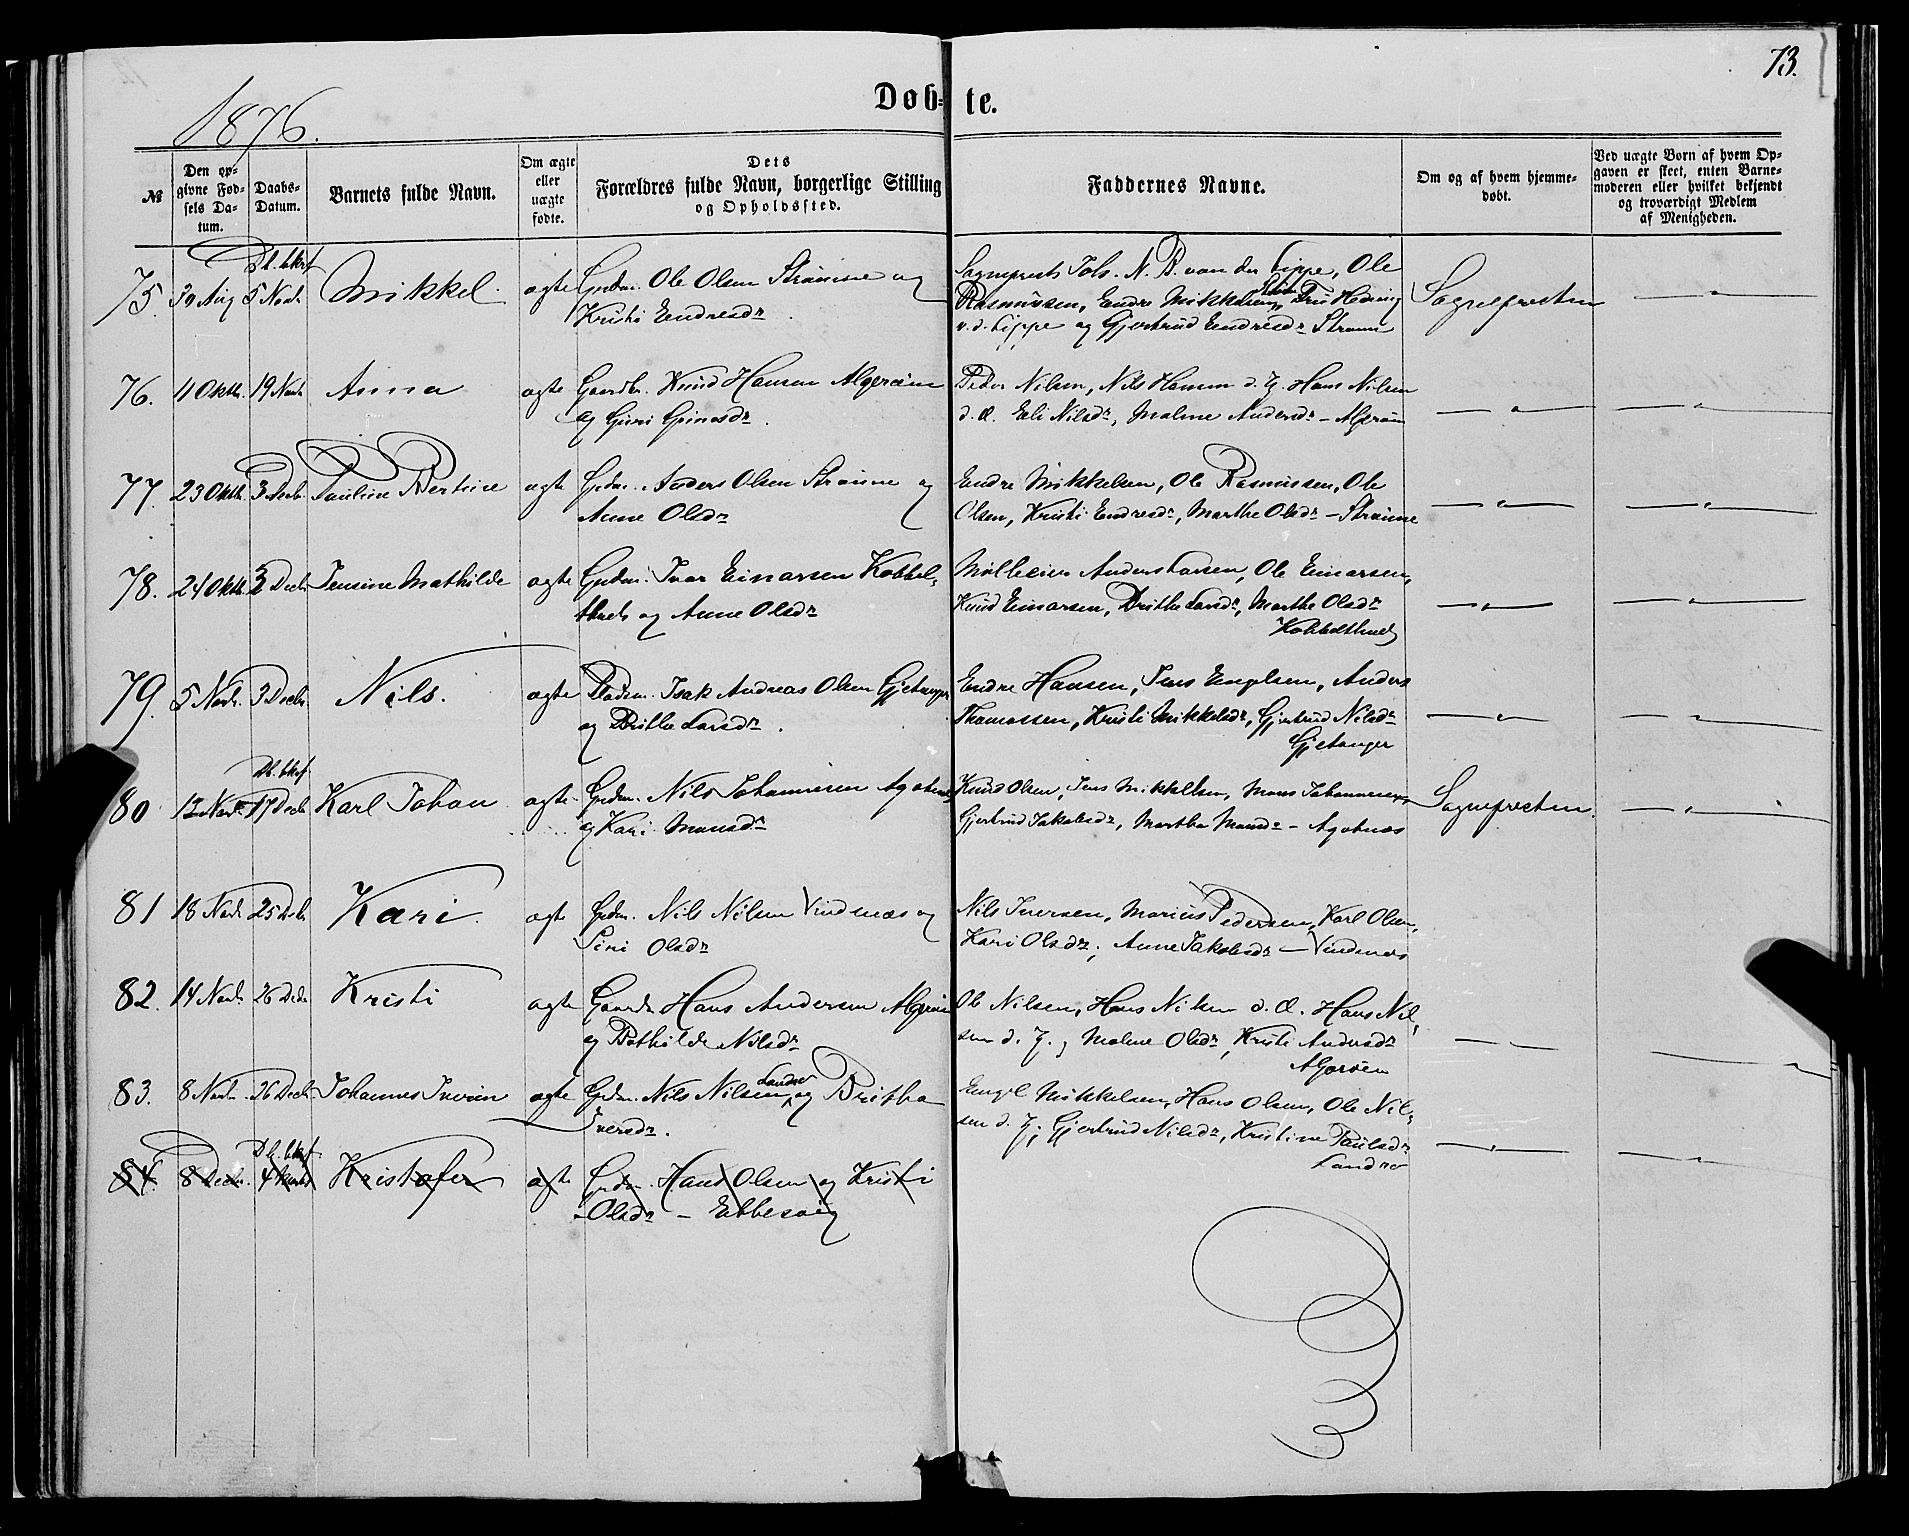 73.
1876.
Døb- te.
№
Den op-
givne Fød-
sels Da-
tum.
Daabs-
Datum.
Barnets fulde Navn.
Om ægte
eller
uægte
fødte.
Dets
Forældres fulde Navn, borgerlige Stilling
og Opholdssted.
Faddernes Navne.
Om og af hvem hjemme-
døbt.
Ved uægte Børn af hvem Op-
gaven er skeet, enten Barne-
moderen eller hvilket bekjendt
og troværdigt Medlem
af Menigheden.
75. 30 Aug 5 Novbr Mikkel. ægte Grdm. Ole Olsen Strømme og
Kristi Endresdr.
Sognepræst Johs. N. B. von der Lippe, Ole
Rasmussen, Endre Mikkelsen Fru Hedvig
v. d. Lippe og Gjertrud Endresdr Strømme
Sognepresten
76. 11 Oktb. 19 Novb Anna ægte Gaardbr. Knud Hansen Algerøen
og Guri
Peder Nilsen, Nils Hansen d. Y. Hans Nilsen
d. Æ. Eli Nilsdr, Malene Andersdr - Algerøen
77. 23 Oktb. 3 Decb. Pauline Bertine ægte Grdm. Anders Olsen Strømme og
Anne Olsdr
Endre Mikkelsen, Ole Rasmussen, Ole
Olsen, Kristi Endresdr, Marthe Olsdr - Strømme
78. 24 Oktb. 3 Decb Jensine Mathilde ægte Grdm. Ivar Einarsen Kobbel-
og Anne Olsdr
Anders Larsen, Ole Einarsen,
Knud Einarsen, Brithe Larsdr, Marthe Olsdr
79. 5 Novb. 3 Decbr. Nils. ægte Pladsm. Isak Andreas Olsen Gjetanger
og Brithe Larsdr.
Endre Hansen, Jens Engelsen, Anders
Thomassen, Kristi Mikkelsdr, Gjertrud Nilsdr
Gjetanger
80 12 Novb 17 Decb Karl Johan ægte Grdm. Nils Johannesen Agotnes
og Kari Monsdr
Knud Olsen, Jens Mikkelsen, Mons Johannesen
Gjertrud Jakobsdr, Martha Monsdr - Agotnes
Sognepresten.
81 18 Novb 25 Decb Kari. ægte Grdm. Nils Nilsen Vindenæs og
Siri Olsdr
Nils Iversen, Marius Pedersen, Karl Olsen,
Kari Olsdr, Anne Jakobsdr - Vindenes
82. 14 Novb 26 Decb Kristi ægte Gaardbr Hans Andersen Algerøen
og Bothilde Nilsdr
Ole Nilsen, Hans Nilsen d. Æ. Hans Nil-
sen d. Y., Malene Olsdr, Kristi Andersdr
Algerøen
83. 8 Novb. 26 Decb Johannes Iverin ægte Grdm. Nils Nilsen Landro og Britha
Iversdr.
Engel Mikkelsen, Hans Olsen, Ole Nil-
sen d. Y. Gjertrud Nilsdr, Kristine Paulsdr
Landro
84. 8 Decbr. Kristofer ægte Grdm. Hans Olsen og Kristi
Olsdr - Ebbesvig